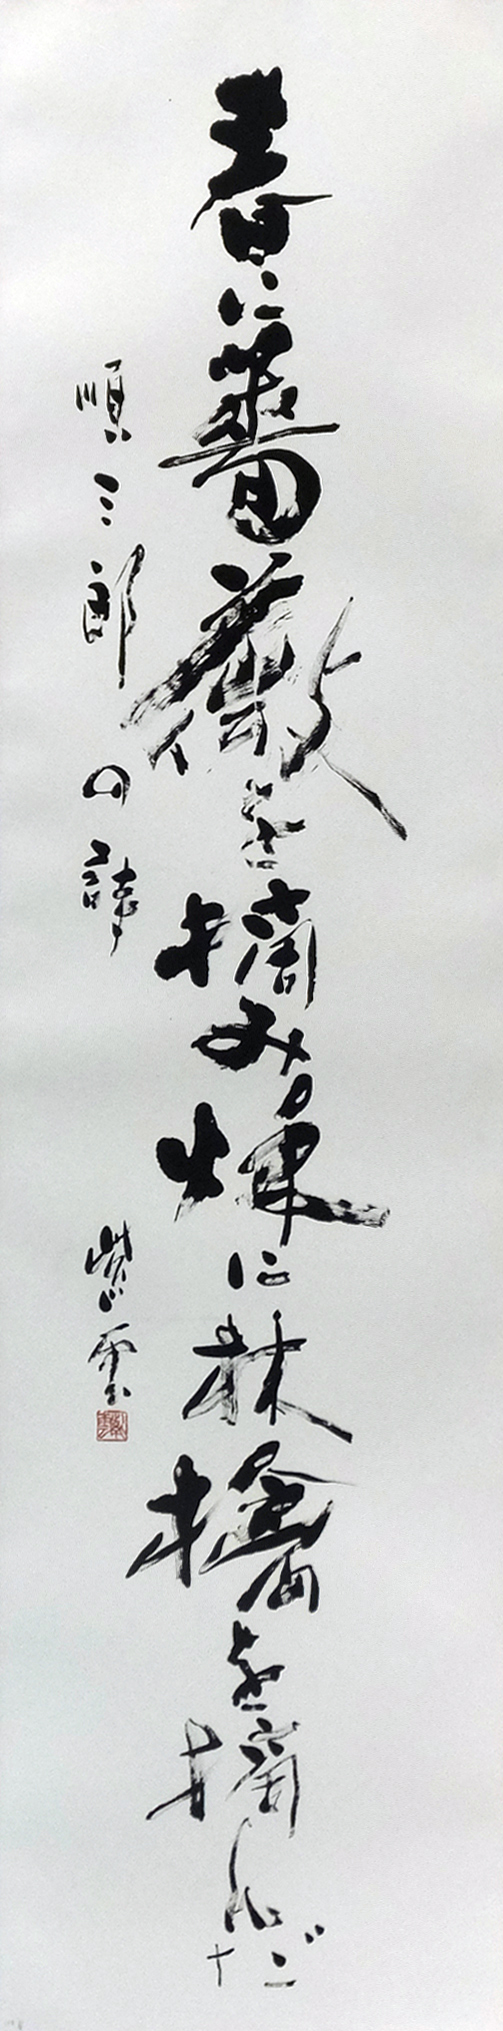 春に薔薇を摘み秌に林檎を摘んだ
順三郎の詩
紫雲